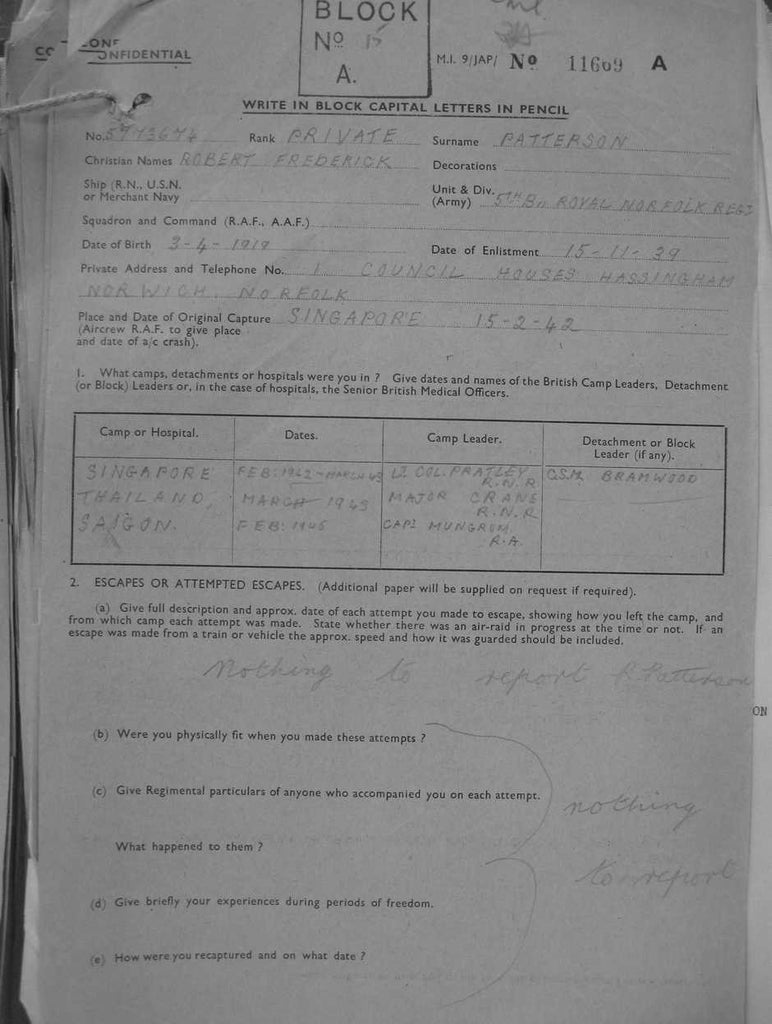 BLOCK
Nº 15
A.
CONFIDENTIAL
M.I. 9/JAP/ Nº 11609 A
WRITE IN BLOCK CAPITAL LETTERS IN PENCIL
No. Rank PRIVATE Surname PATTERSON
Christian Names ROBERT FREDERICK Decorations
Ship (R.N., U.S.N.
or Merchant Navy
Unit & Div.
(Army) 5TH Bn ROYAL NORFOLK REGT
Squadron and Command (R.A.F., A.A.F.)
Date of Birth 3-4-1919 Date of Enlistment 15-11-39
Private Address and Telephone No. 1 COUNCIL HOUSES HASSINGHAM
NORWICH, NORFOLK
Place and Date of Original Capture SINGAPORE 15-2-42
(Aircrew R.A.F. to give place
and date of a/c crash).
1. What camps, detachments or hospitals were you in ? Give dates and names of the British Camp Leaders, Detachment
(or Block) Leaders or, in the case of hospitals, the Senior British Medical Officers.
Camp or Hospital. Dates. Camp Leader. Detachment or Block
Leader (if any).
SINGAPORE FEB: 1942 - MARCH 43 LT. COL. PRATLEY C.S.M. BRAMWOOD
R.N.R
THAILAND, MARCH 1943 MAJOR CRANE
R.N.R.
SAIGON. FEB: 1945 CAPT MUNGROM
R.A.
2. ESCAPES OR ATTEMPTED ESCAPES. (Additional paper will be supplied on request if required).
(a) Give full description and approx. date of each attempt you made to escape, showing how you left the camp, and
from which camp each attempt was made. State whether there was an air-raid in progress at the time or not. If an
escape was made from a train or vehicle the approx. speed and how it was guarded should be included.
Nothing to report R Patterson
ON
(b) Were you physically fit when you made these attempts ?
(c) Give Regimental particulars of anyone who accompanied you on each attempt.
nothing
What happened to them ?
to report
(d) Give briefly your experiences during periods of freedom.
(e) How were you recaptured and on what date ?